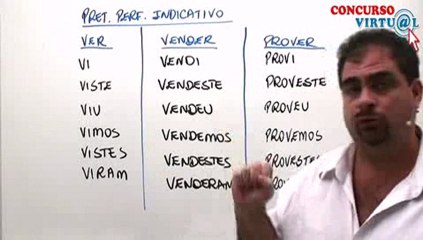 PRET. PERF. INDICATIVO
CONCURSO
VIRTU@L
VER VENDER PROVER
VI VENDI PROVI
VISTE VENDESTE PROVESTE
VIU VENDEU PROVEU
VIMOS VENDEMOS PROVEMOS
VISTES VENDESTES PROVESTES
VIRAM VENDERAM